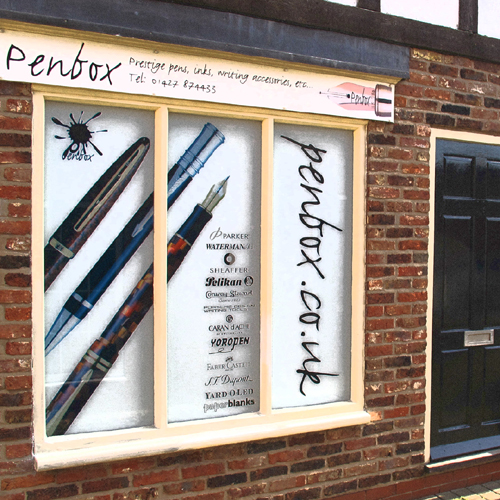 Penbox
Prestige pens, inks, writing accessories, etc...
Tel: 01427 874433
Penbox
penbox
penbox.co.uk
PARKER
WATERMAN
SHEAFFER
Pelikan
Conway Stewart
CARAN d'ACHE
YOROPEN
FABER-CASTELL
S.T. Dupont
YARD O LED
paperblanks